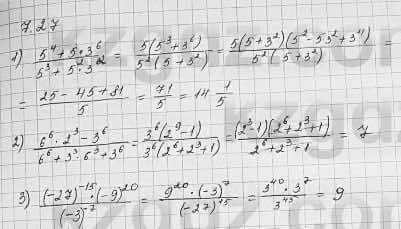 7.27
1) (5^4 + 5·3^6)/(5^3 + 5^2·3^2) = 5(5^3+3^6)/(5^2(5+3^2)) = 5(5+3^2)(5^2-5·3^2+3^4)/(5^2(5+3^2)) =
= (25-45+81)/5 = 71/5 = 14 1/5
2) (6^6·2^3-3^6)/(6^6+3^3·6^3+3^6) = 3^6(2^9-1)/(3^6(2^6+2^3+1)) = (2^3-1)(2^6+2^3+1)/(2^6+2^3+1) = 7
3) ((-27)^-15·(-9)^20)/(-3)^-7 = (9^20·(-3)^7)/(-27)^15 = (3^40·3^7)/3^45 = 9